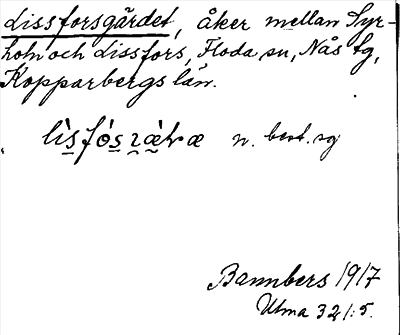 Lissforsgärdet, åker mellan Syr-
holn och Lissfors, Floda sn, Nås tg,
Kopparbergs län.
n. best. sg
Bannbers 1917
Ulma 321:5.